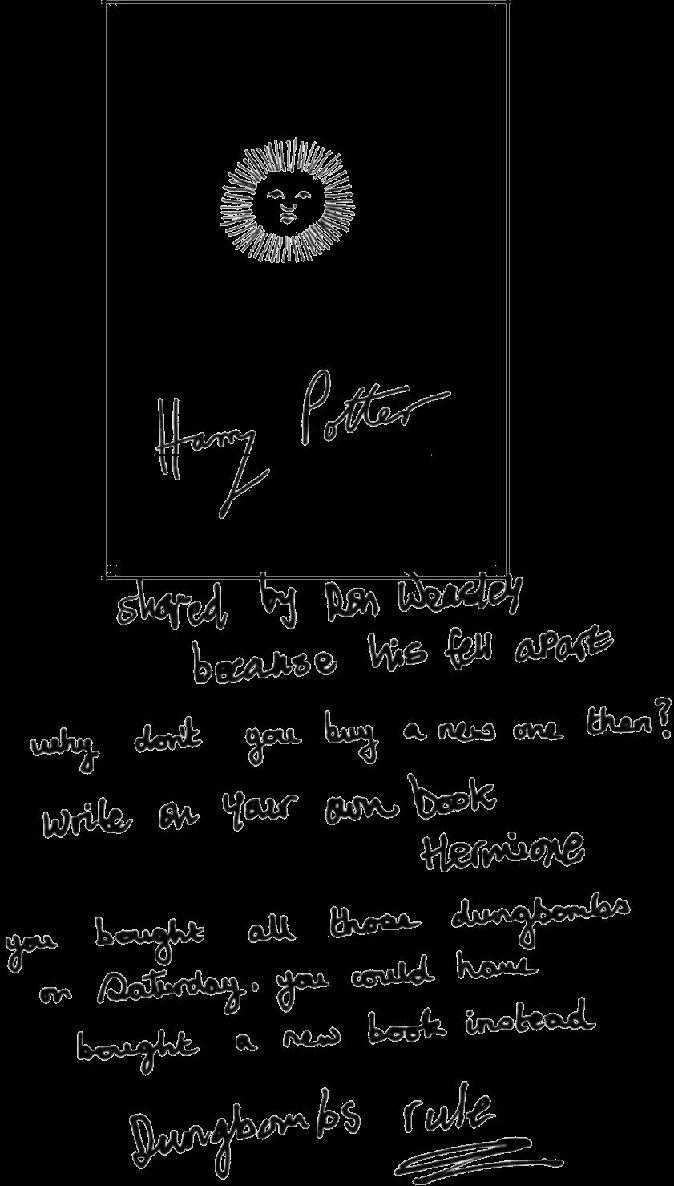 Harry Potter
shared by Ron Weasley
because his fell apart
why don't you buy a new one then?
write on your own book
Hermione
you bought all those dungbombs
on Saturday. you could have
bought a new book instead
Dungbombs rule